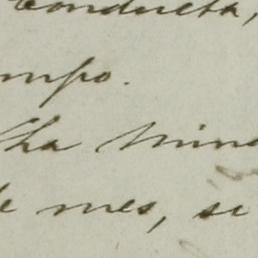 conducta,
mpo.
ha mina
e mes, si